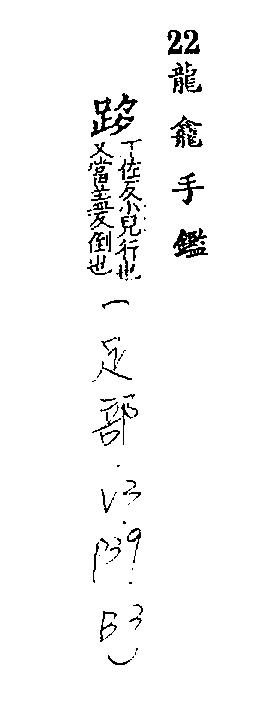 22龍龕手鑑
跢丁佐反小兒行也
又當蓋反倒也
一足部.V3.P39.B3